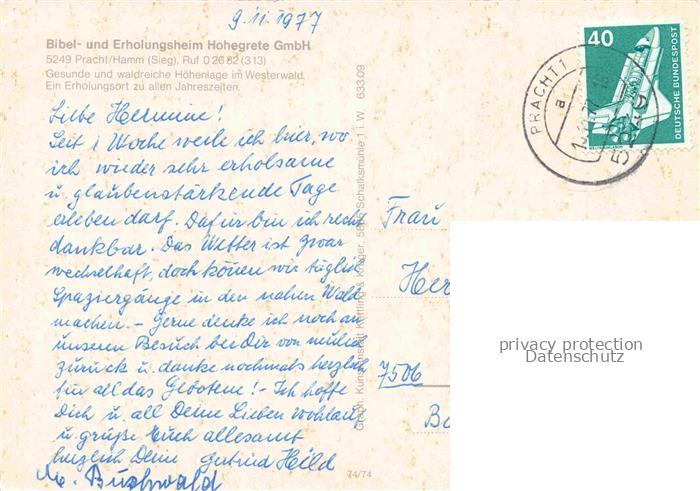 9.11.1977
Bibel- und Erholungsheim Hohegrete GmbH
5249 Pracht/Hamm (Sieg), Ruf 02682 (313)
Gesunde und waldreiche Höhenlage im Westerwald.
Ein Erholungsort zu allen Jahreszeiten.
Liebe Hermine!
Seit 1 Woche weile ich hier, wo
ich wieder sehr erholsame
u. glaubenstärkende Tage
erleben darf. Dafür bin ich recht
dankbar. Das Wetter ist zwar
wechselhaft, doch könen wir täglich
Spaziergänge in den nahen Wald
machen. – Gerne denke ich noch an
unseren Besuch bei Dir von neulich
zurück u. danke nochmals herzlich
für all das Gebotene! – Ich hoffe
Dich u. all Deine Lieben wohlauf
u. grüße Euch allesamt
herzlich Deine Gertrud Hild
Buchwald
74/74
Graph. Kunstanstalt Kröger, Schalksmühle 1 i. W. 633.09
40
DEUTSCHE BUNDESPOST
PRACHT 1
a
Frau
Her
7506
Ba
privacy protection
Datenschutz